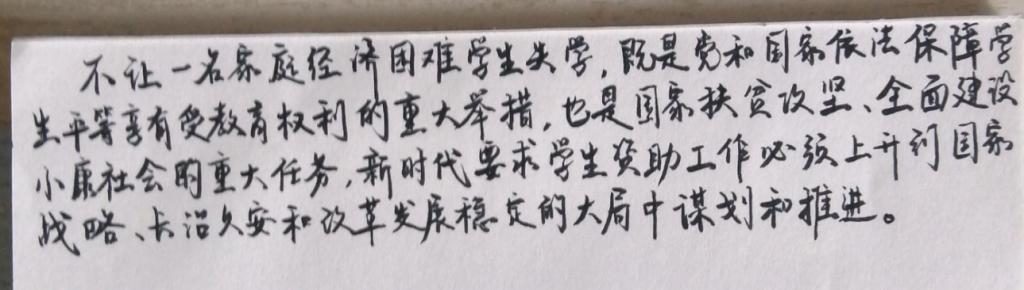 不让一名家庭经济困难学生失学，既是党和国家依法保障学
生平等享有受教育权利的重大举措，也是国家扶贫攻坚、全面建设
小康社会的重大任务，新时代要求学生资助工作必须上升到国家
战略、长治久安和改革发展稳定的大局中谋划和推进。